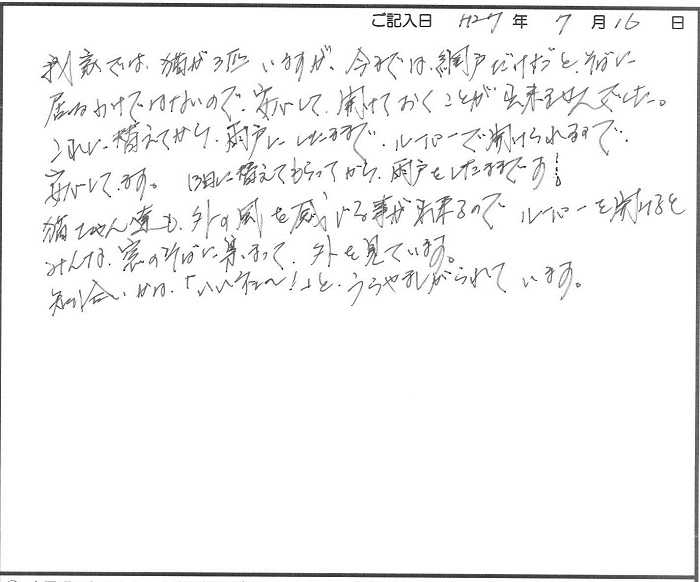 ご記入日 H27年 7月16日
我家では、猫が3匹いますが、今までは、網戸だけだと、そばに
居るわけではないので、安心して、開けておくことが出来ませんでした。
これに替えてから、雨戸にしたままで、ルーバーで開けられるので、
安心してます。 13日に替えてもらってから、雨戸をしたままです!
猫ちゃん達も、外の風を感じる事が出来るので ルーバーを開けると
みんな、窓のそばに集まって、外を見ています。
知り合いからは、「いいネ〜!」と、うらやましがられています。